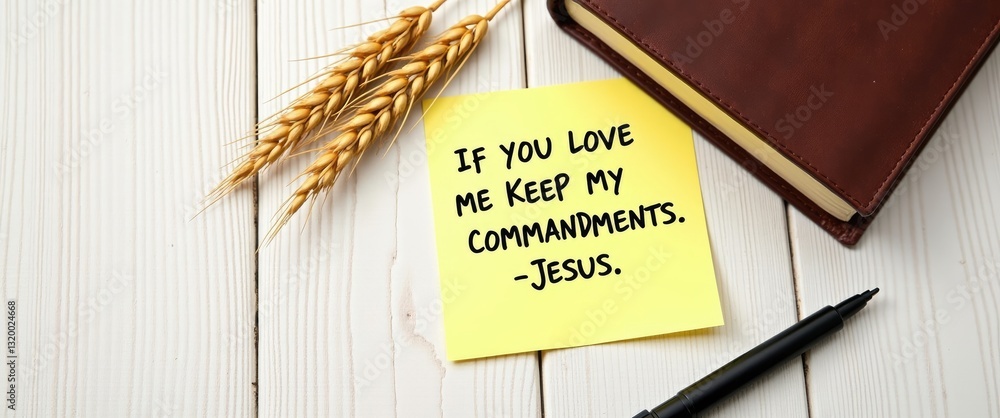 IF YOU LOVE
ME KEEP MY
COMMANDMENTS.
-JESUS.
Adobe Stock | #1320024668